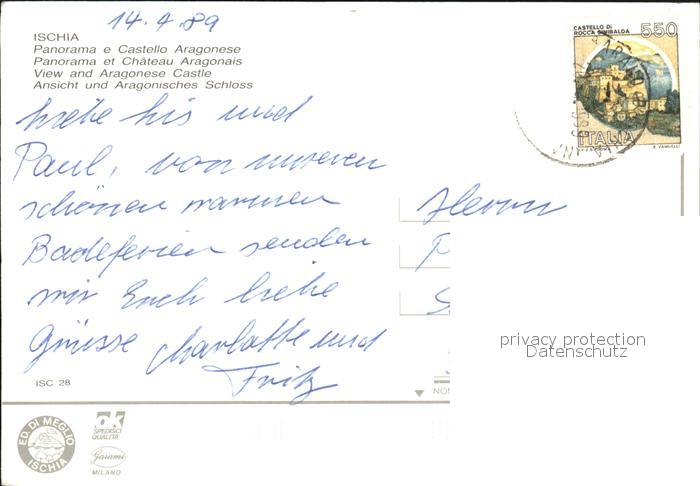 14.4.89
ISCHIA
Panorama e Castello Aragonese
Panorama et Château Aragonais
View and Aragonese Castle
Ansicht und Aragonisches Schloss
CASTELLO DI
ROCCA SINIBALDA
550
ITALIA
E. VANGELLI
Liebe Iris und
Paul, von unseren
schönen warmen
Badeferien senden
wir Euch liebe
Grüsse Charlotte und
Fritz
Herrn
P
privacy protection
Datenschutz
ISC 28
NON
ED. DI MEGLIO
ISCHIA
ok
SPEDISCI
QUALITÀ
Garami
MILANO